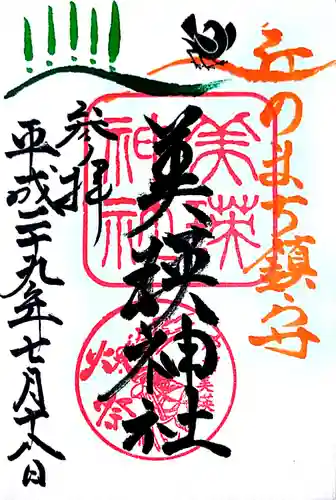 丘のまち鎮守
美瑛神社
参拝
平成二十九年七月十八日
美瑛
神社
美瑛